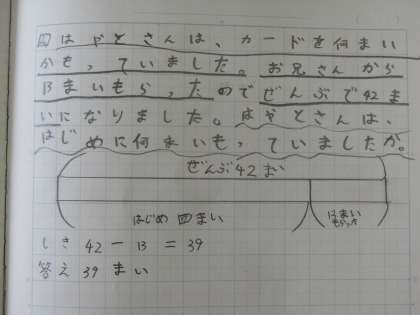 四はやとさんは、カードを何まい
かもっていました。お兄さんから
13まいもらったのでぜんぶで42ま
いになりました。はやとさんは、
はじめに何まいもっていましたか。
ぜんぶ42まい
はじめ 四まい
13まい
もらった
しき 42-13=39
答え 39まい